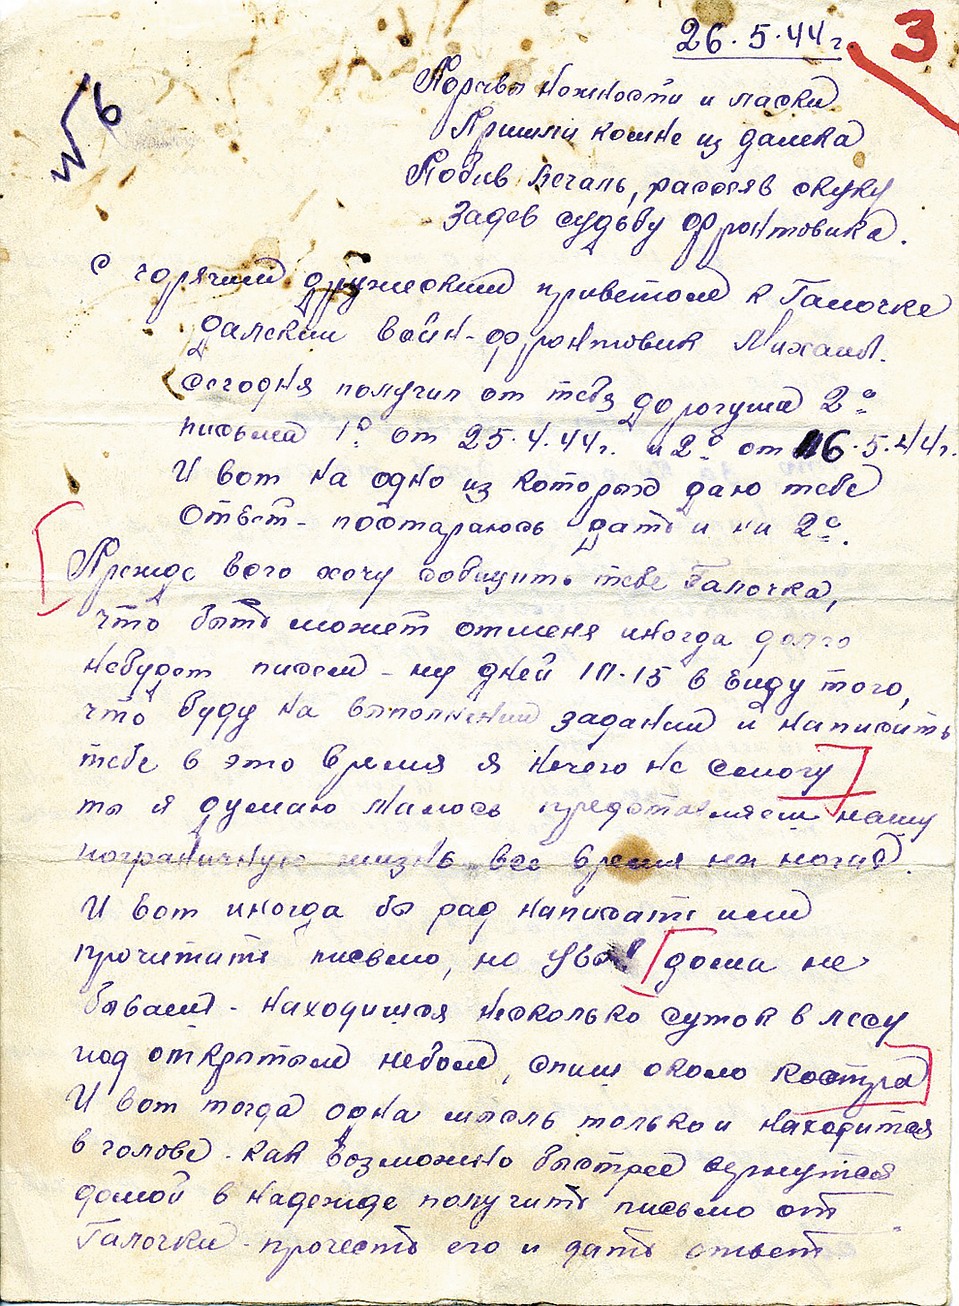 26.5.44 г.
3
№ 6
Порывы нежности и ласки
Пришли комне из далека
Побив печаль, рассеяв скуку
Задев судьбу фронтовика.
С горячим дружеским приветом к Галочке
далекий воин-фронтовик Михаил.
Сегодня получил от тебя дорогуша 2а
письма 1е от 25.4.44г. и 2е от 16.5.44г.
И вот на одно из которых даю тебе
ответ - постараюсь дать и на 2е.
Прежде всего хочу сообщить тебе Галочка,
что быть может отменя иногда долго
небудет писем - ну дней 10-15 в виду того,
что буду на выполнении задании и написать
тебе в это время я нечего не смогу
ты я думаю малось представляеш нашу
пограничную жизнь все время на ногах.
И вот иногда бы рад написать или
прочитать письмо, но увы! дома не
бываем - находишся несколько суток в лесу
под открытым небом, спиш около костра
И вот тогда одна мысль только и находится
в голове - как возможно быстрее вернутся
домой в надежде получить письмо от
Галочки - прочесть его и дать ответ